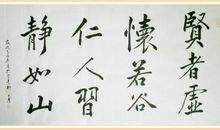 賢者虛
懷若谷
仁人習
静如山